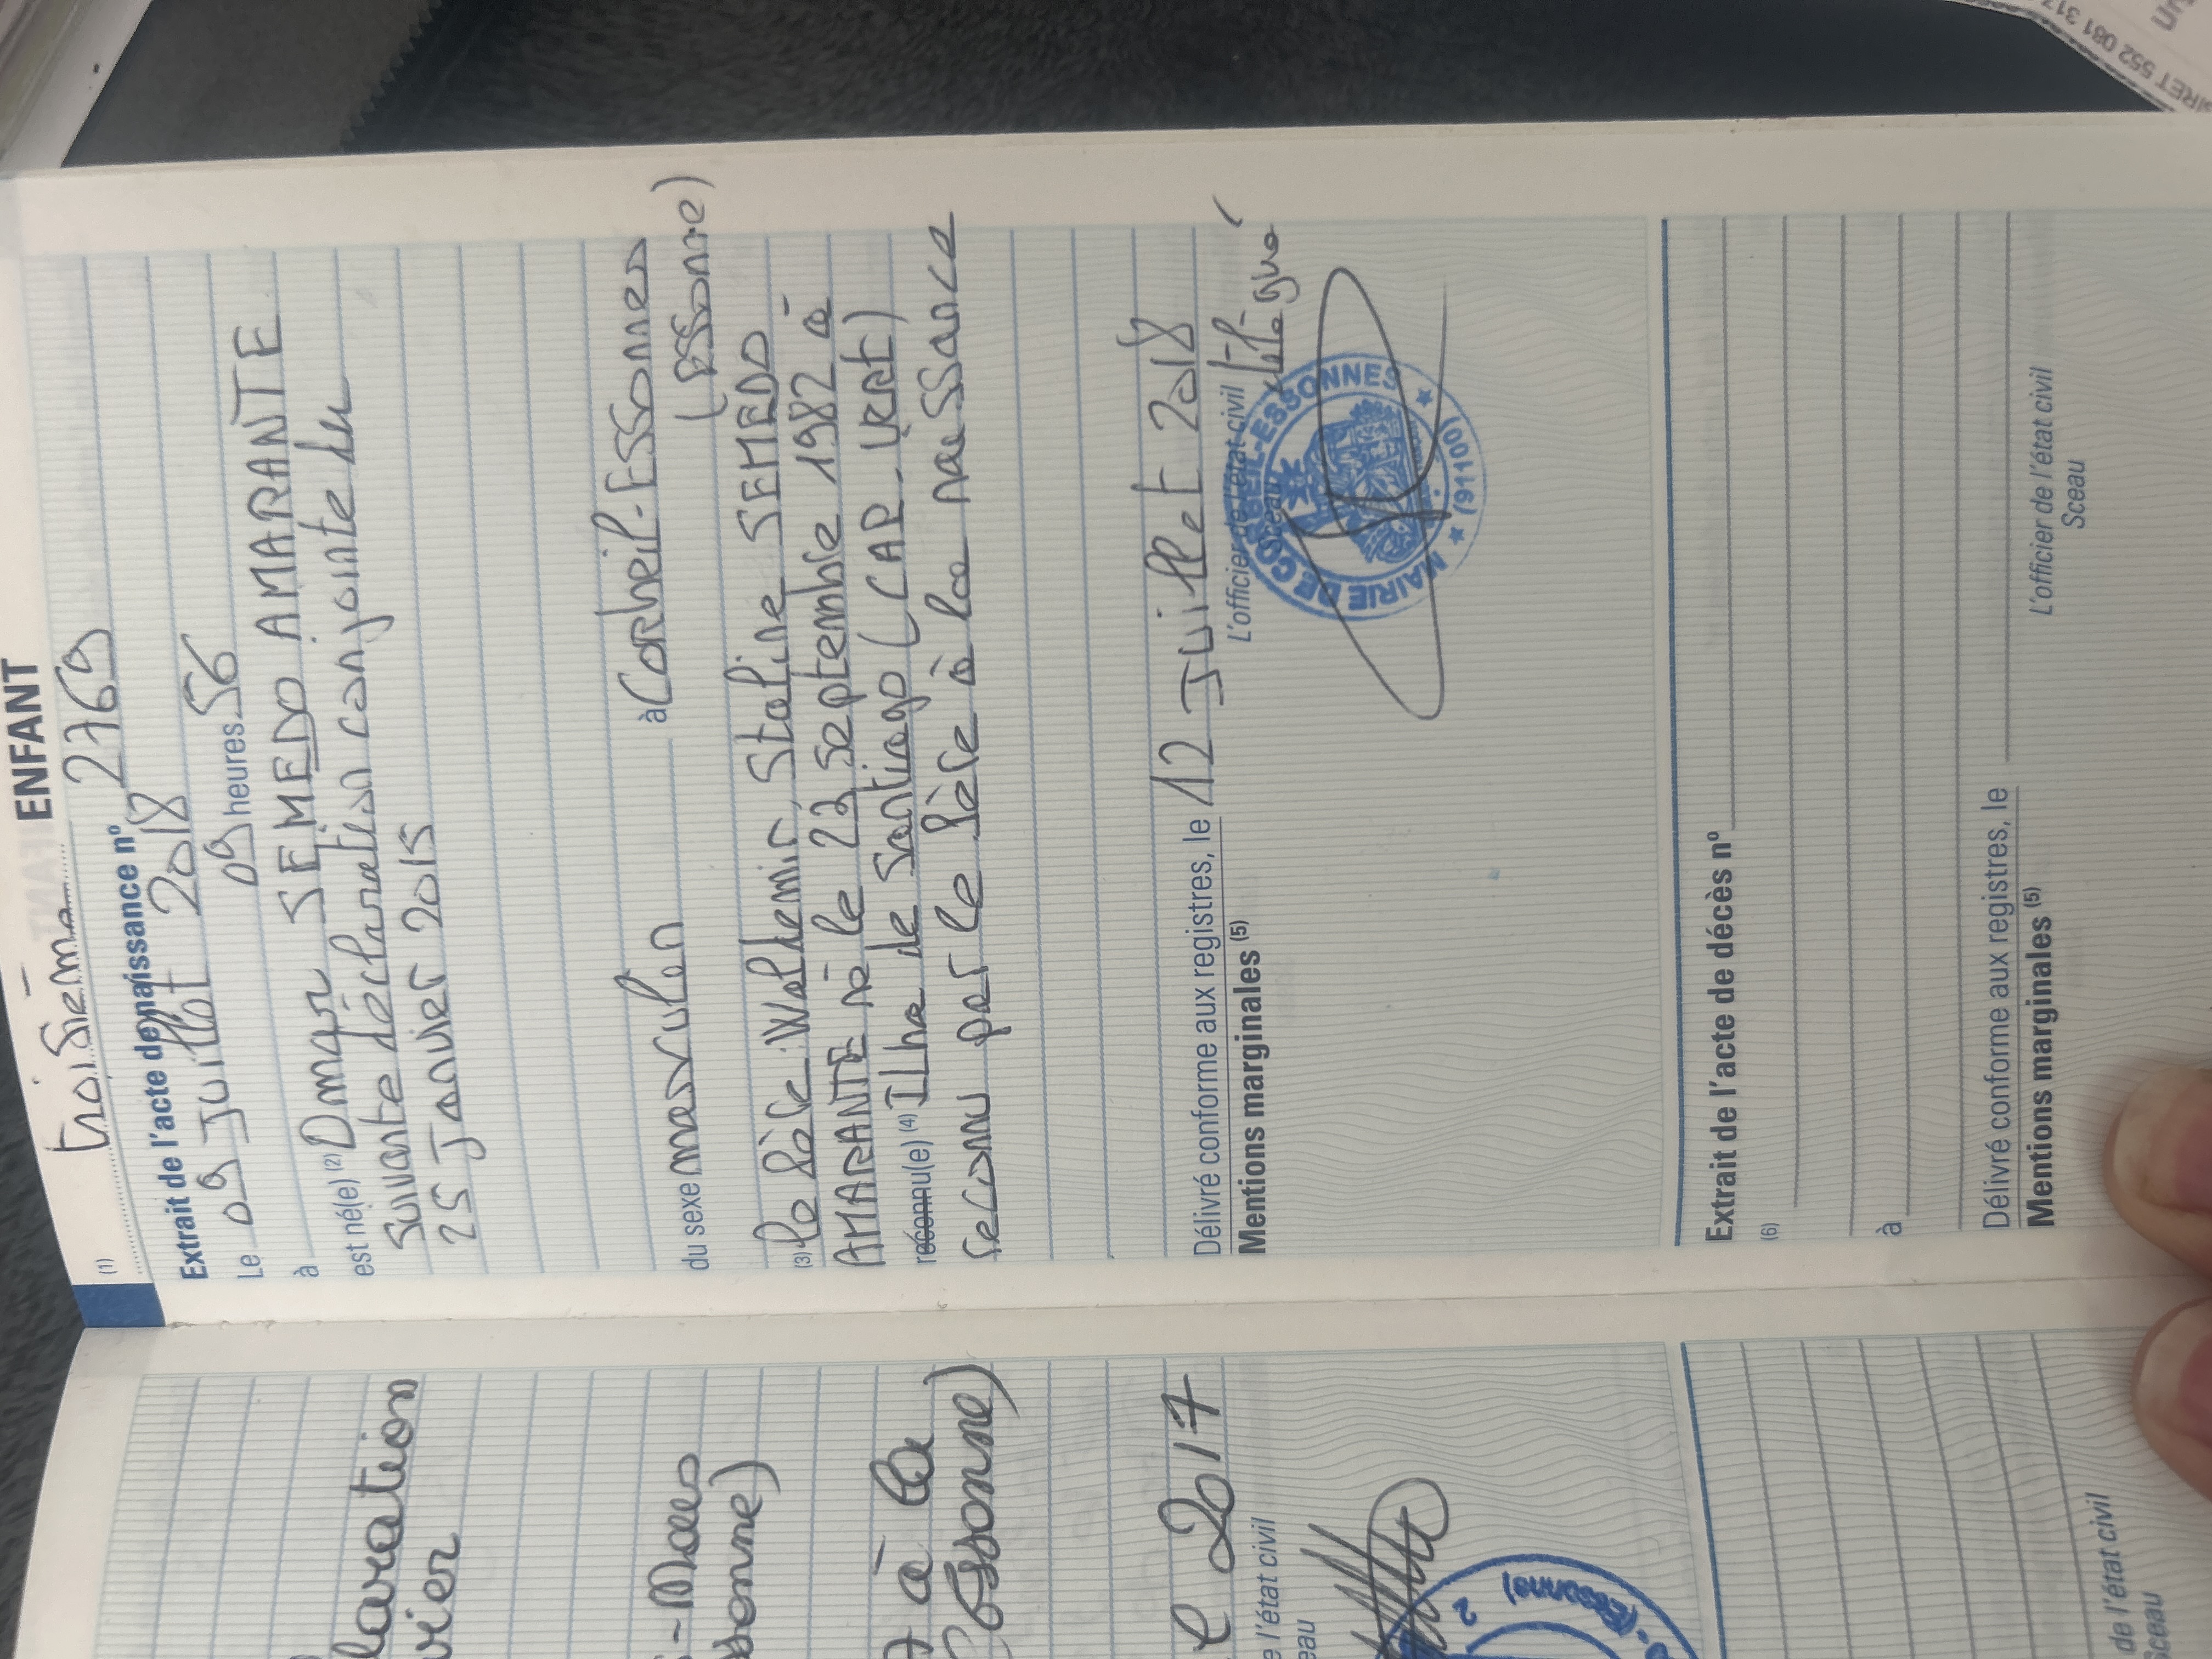 ENFANT
(1) troisième
Extrait de l'acte de naissance n° 2769
Le 09 Juillet 2018
à 09 heures 56
est né(e) (2) Omar SEMEDO AMARANTE
suivante déclaration conjointe du
25 Janvier 2015
du sexe masculin à Corbeil-Essonnes
(Essonne)
(3) le Père : Waldemir, Staline SEMEDO
AMARANTE né le 23 septembre 1982 à
reconnu(e) (4) Ilha de Santiago (CAP-VERT)
reconnu par le Père à la naissance
Délivré conforme aux registres, le 12 Juillet 2018
Mentions marginales (5)
L'officier de l'état civil délégué
Sceau
MAIRIE DE CORBEIL-ESSONNES
★ (91100) ★
Extrait de l'acte de décès n°
(6)
à
Délivré conforme aux registres, le
Mentions marginales (5)
L'officier de l'état civil
Sceau
laration
vier
sonne)
à la
Essonne)
e 2017
e l'état civil
eau
(Essonne)
2
de l'état civil
Sceau
SIRET 552 081 317
un